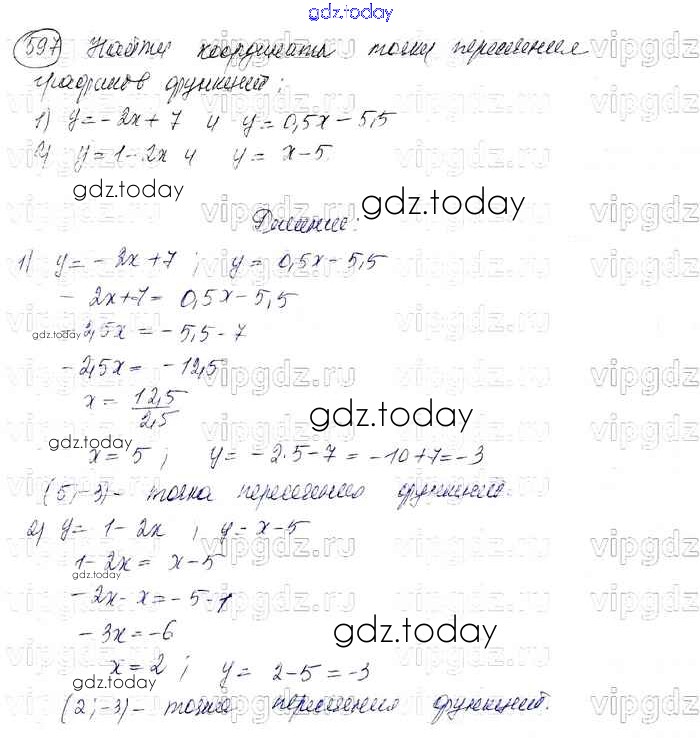 gdz.today
597 Найти координаты точки пересечения
графиков функций:
1) y=-2x+7 и y=0,5x-5,5
2) y=1-2x и y=x-5
gdz.today
gdz.today
Решение:
1) y=-2x+7; y=0,5x-5,5
-2x+7=0,5x-5,5
gdz.today
-2,5x=-5,5-7
-2,5x=-12,5
x=12,5/2,5
gdz.today
gdz.today
x=5; y=-2·5-7=-10+7=-3
(5;-3)- точка пересечения функций.
2) y=1-2x; y=x-5
1-2x=x-5
gdz.today
-2x-x=-5-1
-3x=-6
gdz.today
x=2; y=2-5=-3
gdz.today
(2;-3)- точка пересечения функций.
vipgdz.ru